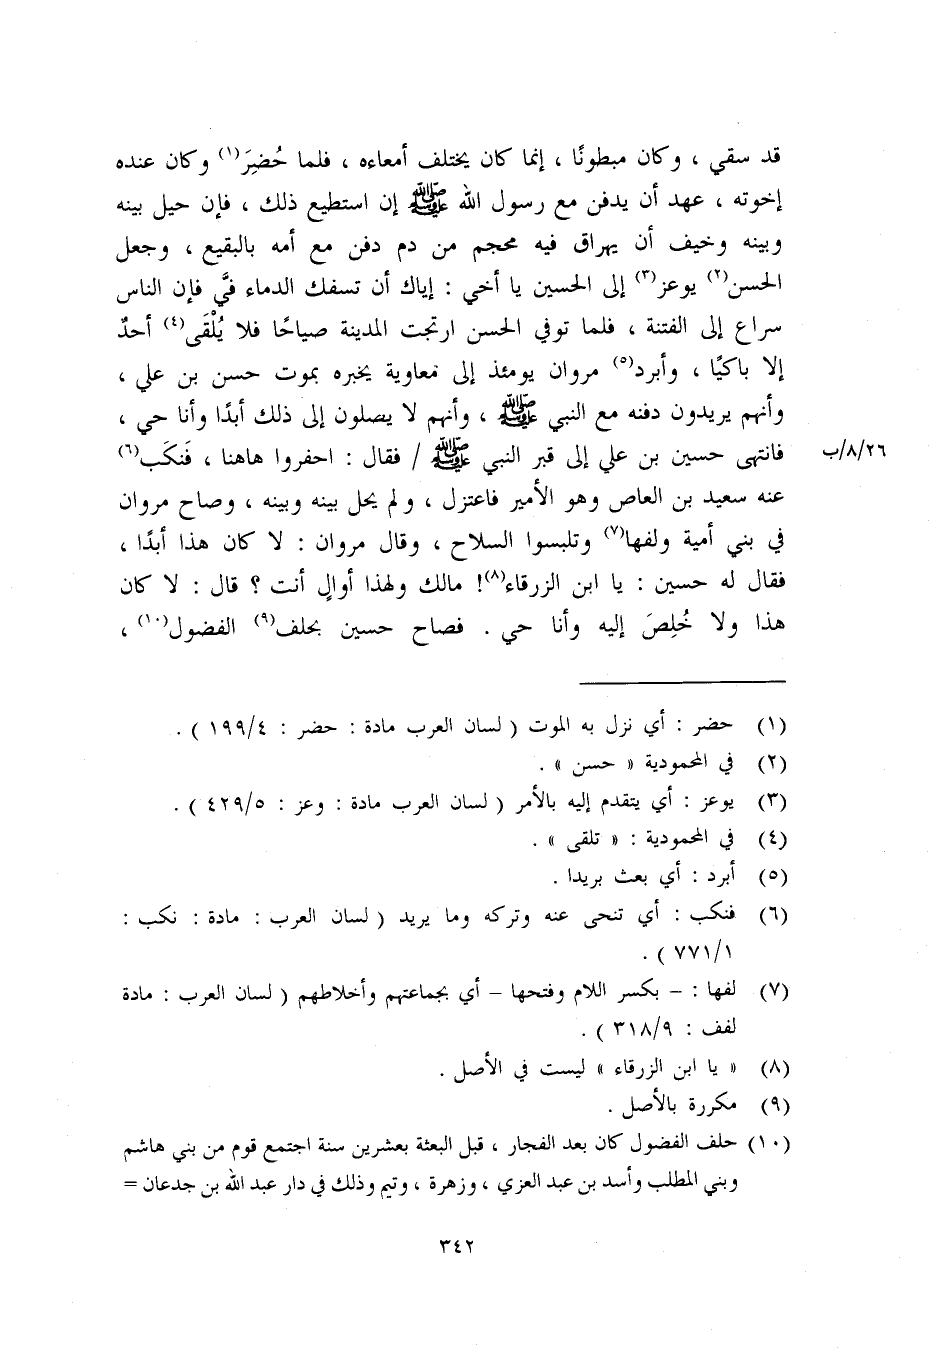 قد سقي ، وكان مبطونًا ، إنما كان يختلف أمعاءه ، فلما حُضِرَ(١) وكان عنده
إخوته ، عهد أن يدفن مع رسول الله ﷺ إن استطيع ذلك ، فإن حيل بينه
وبينه وخيف أن يهراق فيه محجم من دم دفن مع أمه بالبقيع ، وجعل
الحسن(٢) يوعز(٣) إلى الحسين يا أخي : إياك أن تسفك الدماء فيَّ فإن الناس
سراع إلى الفتنة ، فلما توفي الحسن ارتجت المدينة صياحًا فلا يُلْقَى(٤) أحدٌ
إلا باكيًا ، وأبرد(٥) مروان يومئذ إلى معاوية يخبره بموت حسن بن علي ،
وأنهم يريدون دفنه مع النبي ﷺ ، وأنهم لا يصلون إلى ذلك أبدًا وأنا حي ،
فانتهى حسين بن علي إلى قبر النبي ﷺ / فقال : احفروا هاهنا ، فَنكَب(٦)
٢٦/٨/ب
عنه سعيد بن العاص وهو الأمير فاعتزل ، ولم يحل بينه وبينه ، وصاح مروان
في بني أمية ولفها(٧) وتلبسوا السلاح ، وقال مروان : لا كان هذا أبدًا ،
فقال له حسين : يا ابن الزرقاء(٨)! مالك ولهذا أوالٍ أنت ؟ قال : لا كان
هذا ولا خُلِصَ إليه وأنا حي . فصاح حسين بحلف(٩) الفضول(١٠) ،
(١) حضر : أي نزل به الموت ( لسان العرب مادة : حضر : ١٩٩/٤ ) .
(٢) في المحمودية « حسن » .
(٣) يوعز : أي يتقدم إليه بالأمر ( لسان العرب مادة : وعز : ٤٢٩/٥ ) .
(٤) في المحمودية : « تلقى » .
(٥) أبرد : أي بعث بريدا .
(٦) فنكب : أي تنحى عنه وتركه وما يريد ( لسان العرب : مادة : نكب :
٧٧١/١ ) .
(٧) لفها : – بكسر اللام وفتحها – أي بجماعتهم وأخلاطهم ( لسان العرب : مادة
لفف : ٣١٨/٩ ) .
(٨) « يا ابن الزرقاء » ليست في الأصل .
(٩) مكررة بالأصل .
(١٠) حلف الفضول كان بعد الفجار ، قبل البعثة بعشرين سنة اجتمع قوم من بني هاشم
وبني المطلب وأسد بن عبد العزي ، وزهرة ، وتيم وذلك في دار عبد الله بن جدعان =
٣٤٢